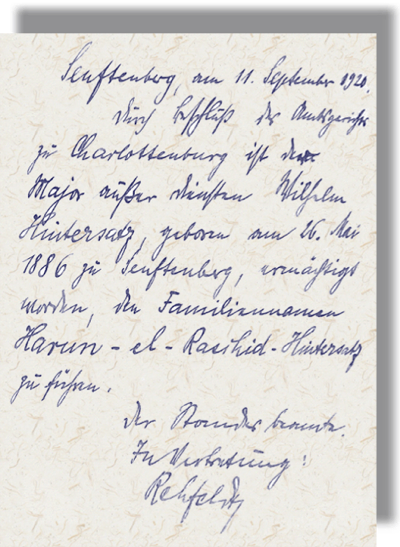 Senftenberg, am 11. September 1920.
durch Beschluß des Amtsgerichts
zu Charlottenburg ist der
Major außer diensten Wilhelm
Hintersatz, geboren am 26. Mai
1886 zu Senftenberg, ermächtigt
worden, den Familiennamen
Harun - el - Raschid - Hintersatz
zu führen.
der Standesbeamte.
In Vertretung: